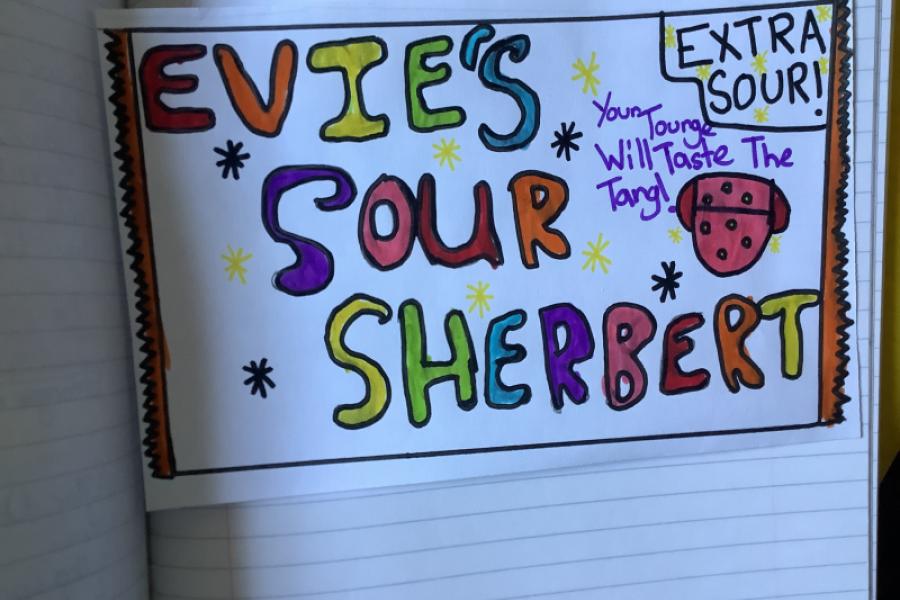 EVIE'S
SOUR
SHERBERT
EXTRA
SOUR!
Your
Tounge
Will Taste The
Tang!